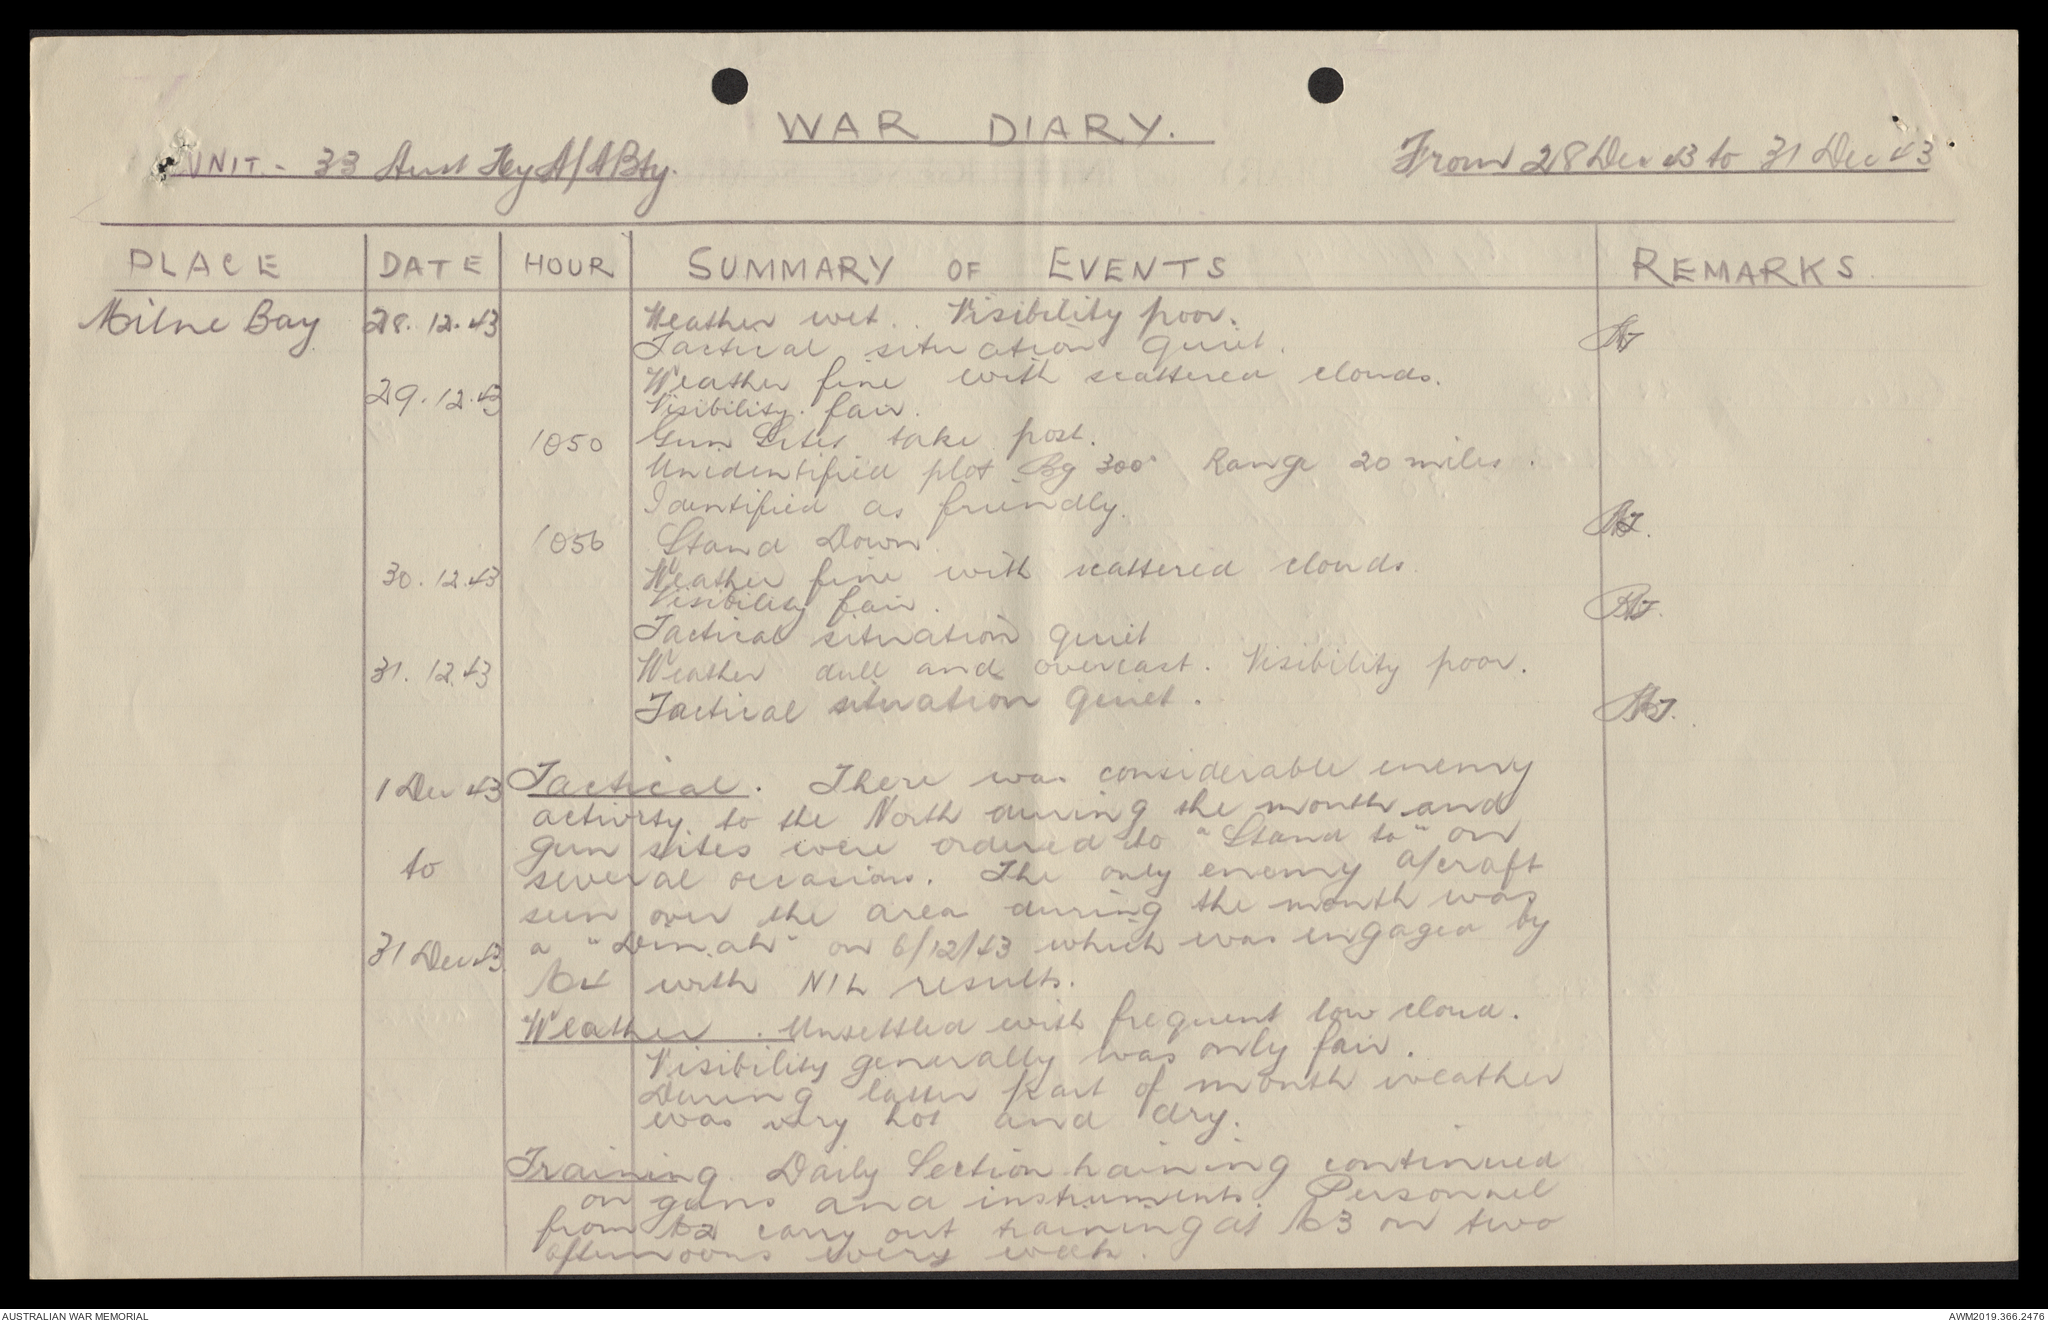 WAR DIARY.
UNIT - 33 Aust Hy A/A Bty. From 28 Dec 43 to 31 Dec 43
PLACE DATE HOUR SUMMARY OF EVENTS REMARKS
Milne Bay 28.12.43 Weather wet. Visibility poor.
Tactical situation quiet.
Weather fine with scattered clouds.
29.12.43 Visibility fair.
1050 Gun Sites take post.
Unidentified plot Bg 300° Range 20 miles.
Identified as friendly.
1056 Stand Down.
30.12.43 Weather fine with scattered clouds.
Visibility fair.
Tactical situation quiet
31.12.43 Weather dull and overcast. Visibility poor.
Tactical situation quiet.
1 Dec 43 Tactical. There was considerable enemy
activity to the North during the month and
gun sites were ordered to "Stand to" on
to several occasions. The only enemy a/craft
seen over the area during the month was
31 Dec 43 a "Dinah" on 6/12/43 which was engaged by
with NIL results.
Weather. Unsettled with frequent low cloud.
Visibility generally was only fair.
During latter part of month weather
was very hot and dry.
Training. Daily Section training continued
on guns and instruments. Personnel
from carry out training at on two
afternoons every week.
AUSTRALIAN WAR MEMORIAL AWM2019.366.2476